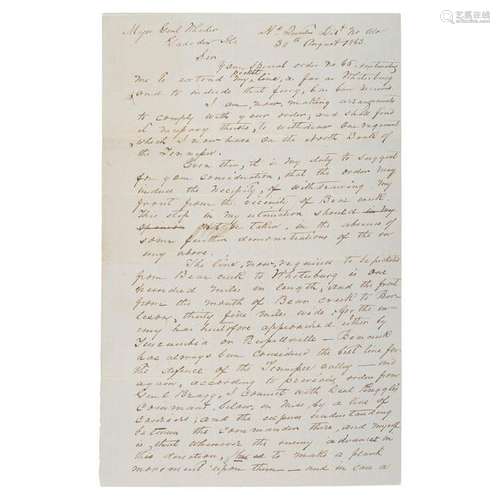 Major Genl Wheeler
Gadsden Ala
Hd Quarters Dist No Ala
30th August 1863
Sir
Your Special order no 65. instructing
me to extend my Picket line, as far as Whitesburg
and to include that ferry, has been received
I am, now, making arrangements
to comply with your order, and shall find
it necessary thereto, to withdraw one regiment
which I now have on the North Bank of
the Tennessee.
Even then, it is my duty to suggest
for your consideration, that the order may
induce the necessity, of withdrawing my
front from the vicinity of Bear creek.
This step in my estimation should
not be taken, in the absence of
some further demonstrations of the en
emy above.
The line, now, required to be picketed
from Bear creek to Whitesburg is one
hundred miles in length, and the front
from the mouth of Bear creek to
thirty five miles wide. For the en
emy has heretofore approached either by
Tuscumbia or Russellville - Bear creek
has always been considered the best line for
the defence of the Tennessee valley - and
again, according to previous order from
Genl Bragg, I connect with Genl Ruggles
Command, below, on Miss by a line of
couriers, and the express understanding
between the commander there, and myself
is, that whenever the enemy advances in
this direction, to make a flank
movement upon them - and in case a